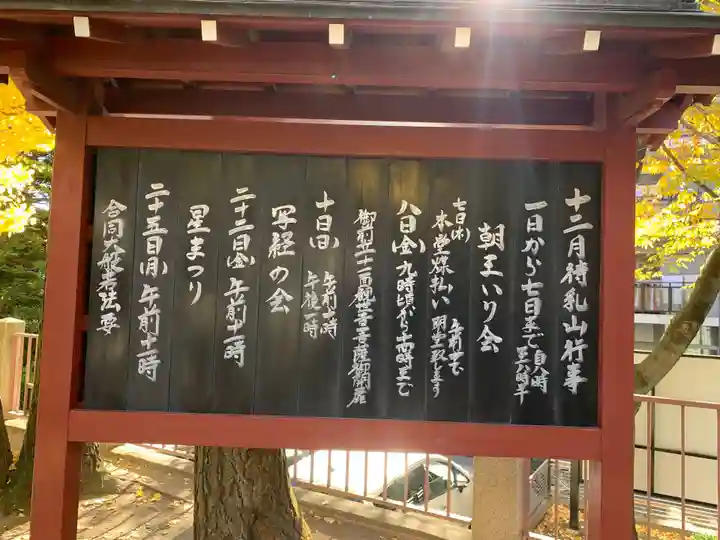 十二月待乳山行事
一日から七日まで 自八時
至八時半
朝まいり会
七日(木)
本堂煤払い 午前中
八日(金) 九時頃から十四時まで
御前立十一面観世音菩薩御開扉
十日(日) 午前十時
午後一時
写経の会
二十二日(金) 午前十一時
星まつり
二十五日(月) 午前十一時
合同大般若法要